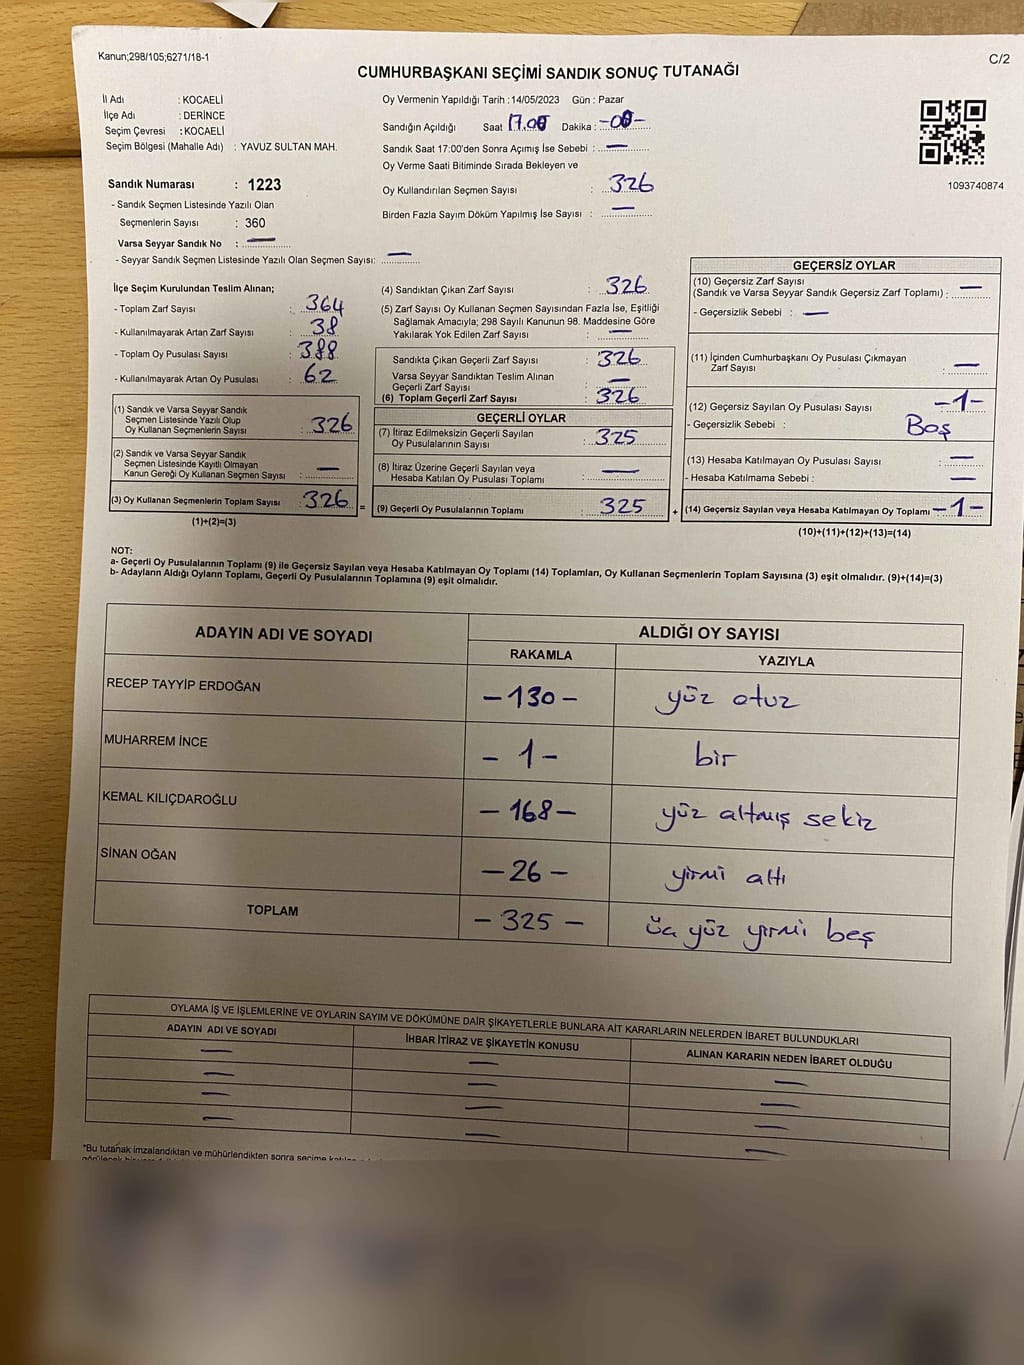 Kanun;298/105;6271/18-1
C/2
CUMHURBAŞKANI SEÇİMİ SANDIK SONUÇ TUTANAĞI
İl Adı : KOCAELİ
İlçe Adı : DERİNCE
Seçim Çevresi : KOCAELİ
Seçim Bölgesi (Mahalle Adı) : YAVUZ SULTAN MAH.
Sandık Numarası : 1223
- Sandık Seçmen Listesinde Yazılı Olan
Seçmenlerin Sayısı : 360
Varsa Seyyar Sandık No : —
- Seyyar Sandık Seçmen Listesinde Yazılı Olan Seçmen Sayısı: —
Oy Vermenin Yapıldığı Tarih :14/05/2023 Gün : Pazar
Sandığın Açıldığı Saat 17.00 Dakika : -00-
Sandık Saat 17:00'den Sonra Açımış İse Sebebi : —
Oy Verme Saati Bitiminde Sırada Bekleyen ve
Oy Kullandırılan Seçmen Sayısı : 326
Birden Fazla Sayım Döküm Yapılmış İse Sayısı : —
1093740874
İlçe Seçim Kurulundan Teslim Alınan;
- Toplam Zarf Sayısı : 364
- Kullanılmayarak Artan Zarf Sayısı : 38
- Toplam Oy Pusulası Sayısı : 388
- Kullanılmayarak Artan Oy Pusulası : 62
(1) Sandık ve Varsa Seyyar Sandık
Seçmen Listesinde Yazılı Olup
Oy Kullanan Seçmenlerin Sayısı : 326
(2) Sandık ve Varsa Seyyar Sandık
Seçmen Listesinde Kayıtlı Olmayan
Kanun Gereği Oy Kullanan Seçmen Sayısı : —
(3) Oy Kullanan Seçmenlerin Toplam Sayısı 326 =
(1)+(2)=(3)
(4) Sandıktan Çıkan Zarf Sayısı : 326
(5) Zarf Sayısı Oy Kullanan Seçmen Sayısından Fazla İse, Eşitliği
Sağlamak Amacıyla; 298 Sayılı Kanunun 98. Maddesine Göre
Yakılarak Yok Edilen Zarf Sayısı : —
Sandıkta Çıkan Geçerli Zarf Sayısı : 326
Varsa Seyyar Sandıktan Teslim Alınan
Geçerli Zarf Sayısı : —
(6) Toplam Geçerli Zarf Sayısı : 326
GEÇERLİ OYLAR
(7) İtiraz Edilmeksizin Geçerli Sayılan
Oy Pusulalarının Sayısı : 325
(8) İtiraz Üzerine Geçerli Sayılan veya
Hesaba Katılan Oy Pusulası Toplamı : —
(9) Geçerli Oy Pusulalarının Toplamı : 325 +
GEÇERSİZ OYLAR
(10) Geçersiz Zarf Sayısı
(Sandık ve Varsa Seyyar Sandık Geçersiz Zarf Toplamı) : —
- Geçersizlik Sebebi : —
(11) İçinden Cumhurbaşkanı Oy Pusulası Çıkmayan
Zarf Sayısı : —
(12) Geçersiz Sayılan Oy Pusulası Sayısı : -1-
- Geçersizlik Sebebi : Boş
(13) Hesaba Katılmayan Oy Pusulası Sayısı : —
- Hesaba Katılmama Sebebi : —
(14) Geçersiz Sayılan veya Hesaba Katılmayan Oy Toplamı -1-
(10)+(11)+(12)+(13)=(14)
NOT:
a- Geçerli Oy Pusulalarının Toplamı (9) ile Geçersiz Sayılan veya Hesaba Katılmayan Oy Toplamı (14) Toplamları, Oy Kullanan Seçmenlerin Toplam Sayısına (3) eşit olmalıdır. (9)+(14)=(3)
b- Adayların Aldığı Oyların Toplamı, Geçerli Oy Pusulalarının Toplamına (9) eşit olmalıdır.
ADAYIN ADI VE SOYADI
ALDIĞI OY SAYISI
RAKAMLA YAZIYLA
RECEP TAYYİP ERDOĞAN -130- yüz otuz
MUHARREM İNCE -1- bir
KEMAL KILIÇDAROĞLU -168- yüz altmış sekiz
SİNAN OĞAN -26- yirmi altı
TOPLAM -325- üç yüz yirmi beş
OYLAMA İŞ VE İŞLEMLERİNE VE OYLARIN SAYIM VE DÖKÜMÜNE DAİR ŞİKAYETLERLE BUNLARA AİT KARARLARIN NELERDEN İBARET BULUNDUKLARI
ADAYIN ADI VE SOYADI İHBAR İTİRAZ VE ŞİKAYETİN KONUSU ALINAN KARARIN NEDEN İBARET OLDUĞU
— — —
— — —
— — —
— — —
*Bu tutanak imzalandıktan ve mühürlendikten sonra seçime